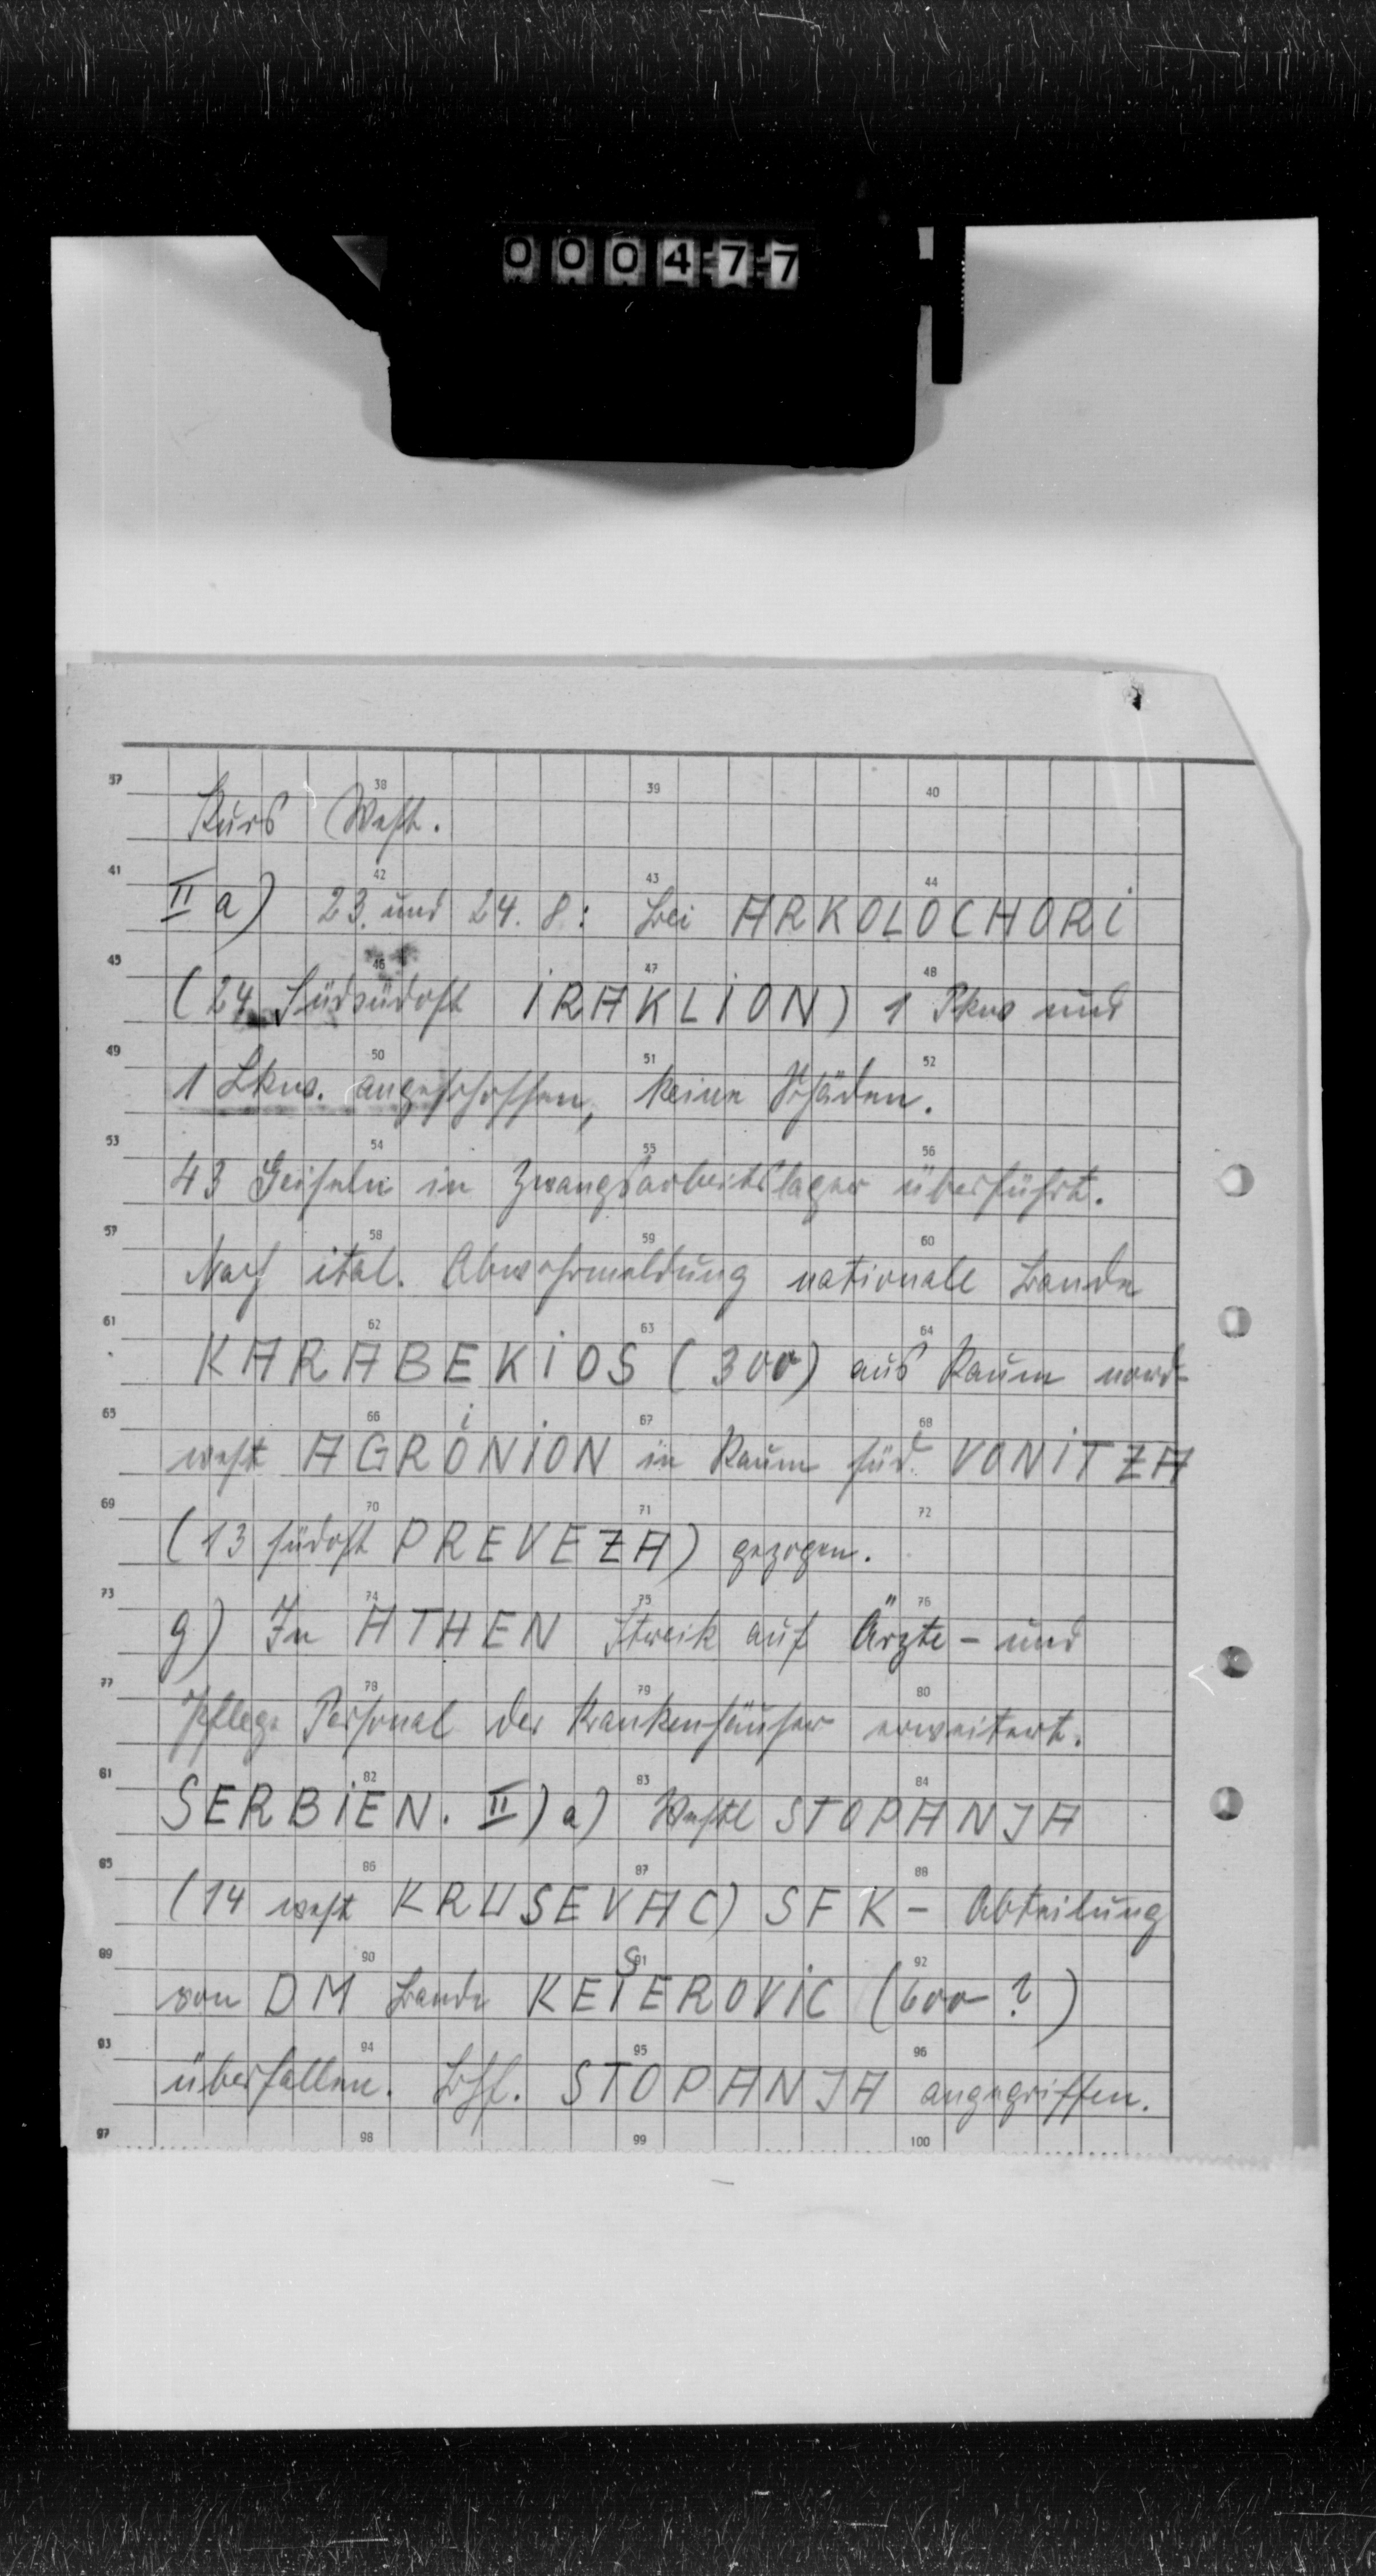 000477
37 38 39 40
Kurs West.
41 42 43 44
II a) 23. und 24. 8: bei ARKOLOCHORI
45 46 47 48
(24 südsüdost IRAKLION) 1 Pkw und
49 50 51 52
1 Lkw. angeschossen, keine Schäden.
53 54 55 56
43 Geiseln in Zwangsarbeitslager überführt.
57 58 59 60
Nach ital. Abwehrmeldung nationale Bande
61 62 63 64
KARABEKIOS (300) aus Raum nord-
65 66 67 68
west AGRINION in Raum süd. VONITZA
69 70 71 72
(13 südost PREVEZA) gezogen.
73 74 75 76
g) In ATHEN Streik auf Ärzte- und
77 78 79 80
Pflege Personal der Krankenhäuser erweitert.
81 82 83 84
SERBIEN. II) a) Westl STOPANJA
85 86 87 88
(14 west KRUSEVAC) SFK - Abteilung
89 90 91 92
von DM Bande KESEROVIC (600 ?)
93 94 95 96
überfallen. Bhf. STOPANJA angegriffen.
97 98 99 100